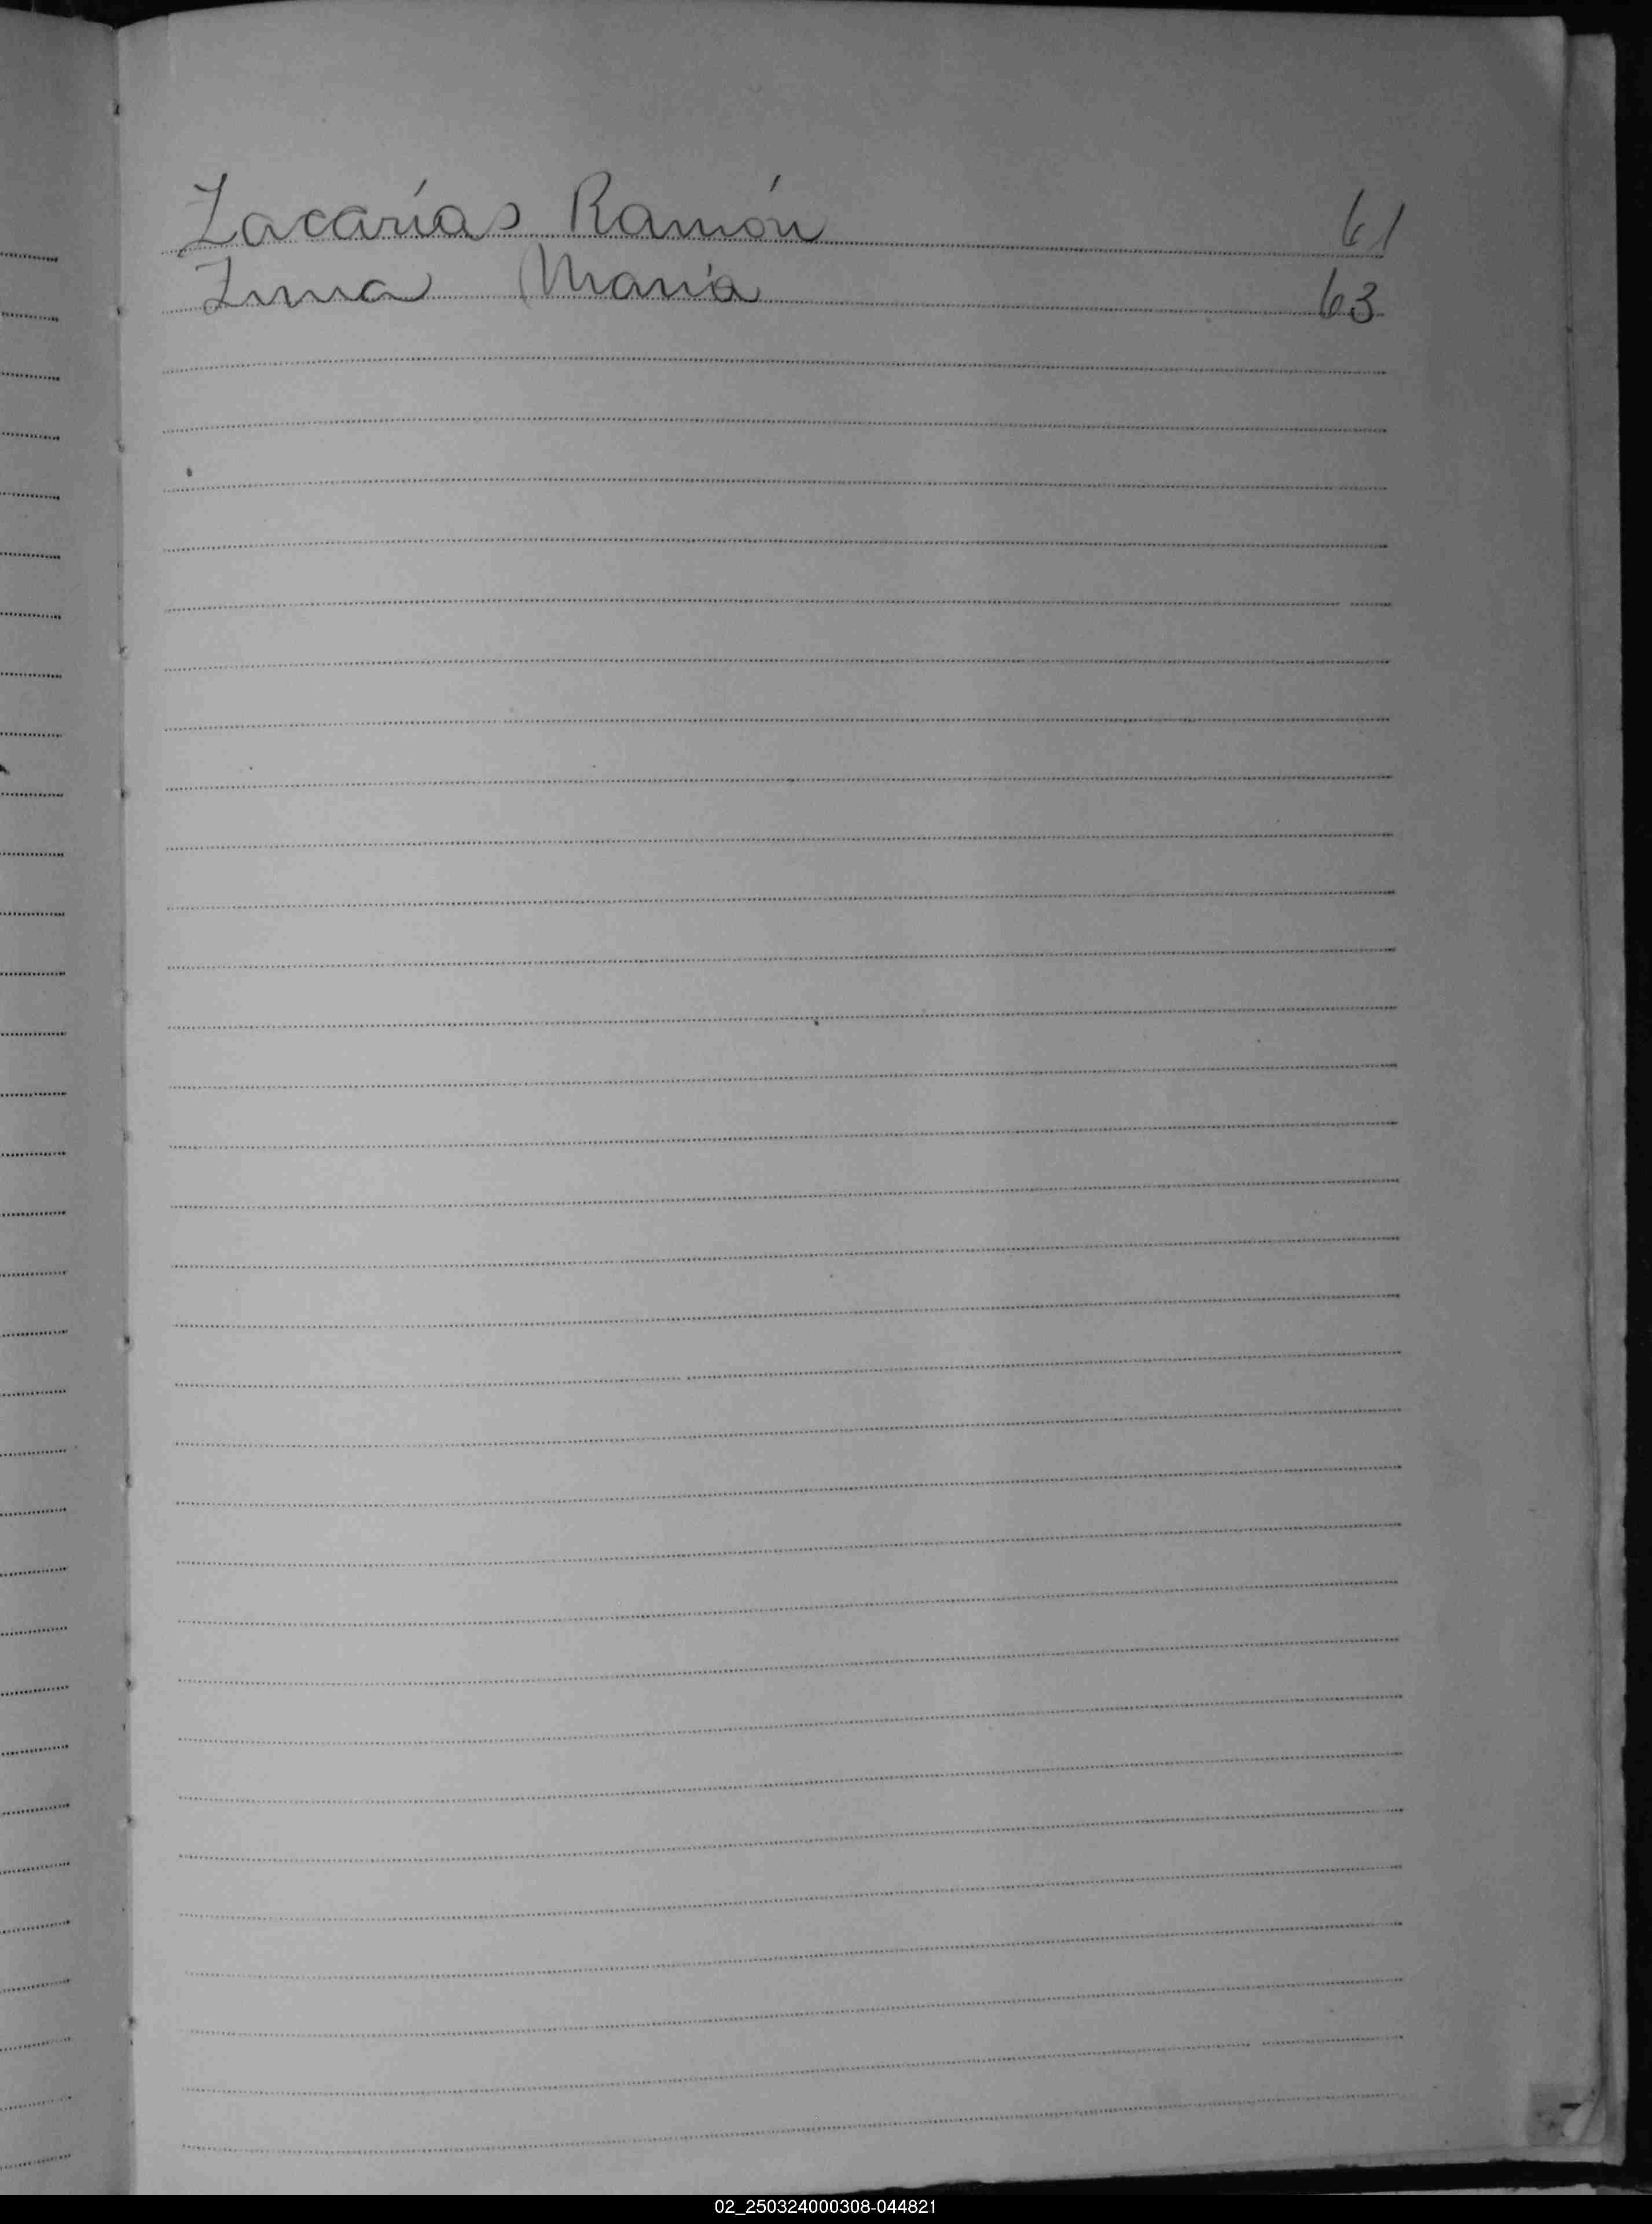 Zacarías Ramón 61
María 63
02_250324000308-044821